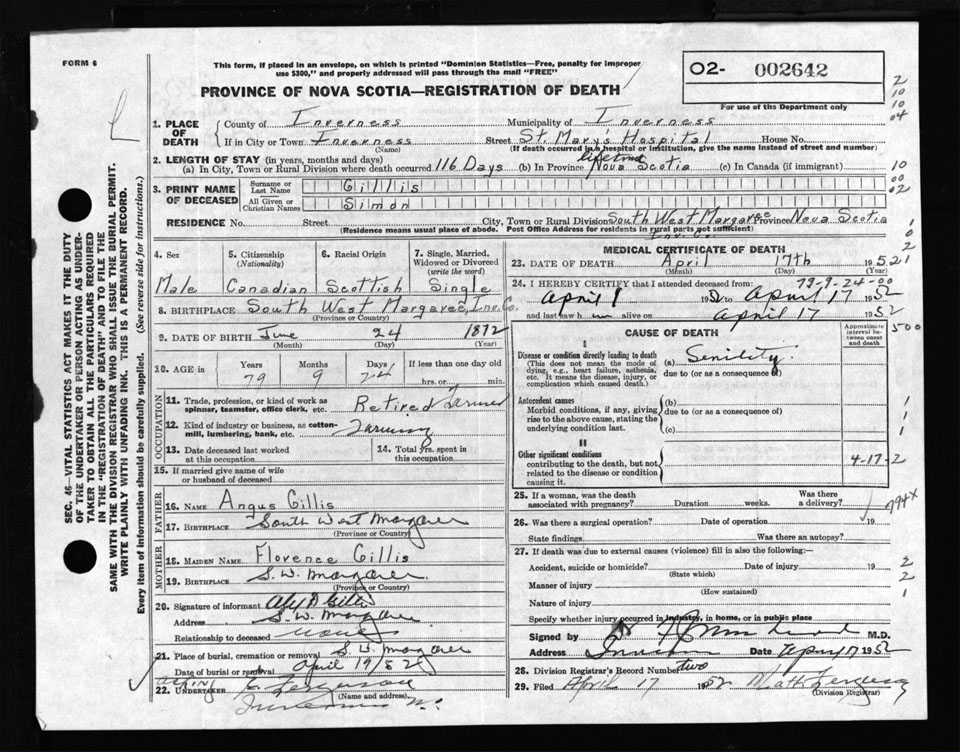 FORM 6
This form, if placed in an envelope, on which is printed "Dominion Statistics—Free, penalty for improper
use $300," and properly addressed will pass through the mail "FREE"
O2- 002642
For use of the Department only
PROVINCE OF NOVA SCOTIA—REGISTRATION OF DEATH
2
10
10
04
1. PLACE OF DEATH
County of Inverness Municipality of Inverness
If in City or Town Inverness Street St. Mary's Hospital House No.
(Name) (If death occurred in a hospital or institution, give the name instead of street and number)
2. LENGTH OF STAY (in years, months and days)
(a) In City, Town or Rural Division where death occurred 116 Days (b) In Province lifetime Nova Scotia (c) In Canada (if immigrant)
10
00
02
3. PRINT NAME OF DECEASED
Surname or Last Name Gillis
All Given or Christian Names Simon
RESIDENCE No. Street City, Town or Rural Division South West Margaree Province Nova Scotia
(Residence means usual place of abode. Post Office Address for residents in rural parts not sufficient)
Inv. Co.
1
0
2
1
4. Sex
Male
5. Citizenship (Nationality)
Canadian
6. Racial Origin
Scottish
7. Single, Married, Widowed or Divorced (write the word)
Single
8. BIRTHPLACE South West Margaree, Inv. Co.
(Province or Country)
9. DATE OF BIRTH June 24 1872
(Month) (Day) (Year)
10. AGE in Years Months Days If less than one day old
79 9 24 hrs. or min.
OCCUPATION
11. Trade, profession, or kind of work as spinner, teamster, office clerk, etc. Retired Farmer
12. Kind of industry or business, as cotton-mill, lumbering, bank, etc. Farming
13. Date deceased last worked at this occupation
14. Total yrs. spent in this occupation
15. If married give name of wife or husband of deceased
FATHER
16. NAME Angus Gillis
17. BIRTHPLACE South West Margaree
(Province or Country)
MOTHER
18. MAIDEN NAME Florence Gillis
19. BIRTHPLACE S. W. Margaree
(Province or Country)
20. Signature of informant Gillis
Address S. W. Margaree
Relationship to deceased
21. Place of burial, cremation or removal S. W. Margaree
Date of burial or removal April 19/52
22. UNDERTAKER Ferguson
(Name and address)
Inverness
MEDICAL CERTIFICATE OF DEATH
23. DATE OF DEATH April 17th 1952
(Month) (Day) (Year)
24. I HEREBY CERTIFY that I attended deceased from: 79-9-24-00
April 1 1952 to April 17 1952
and last saw him alive on April 17 1952
CAUSE OF DEATH
Approximate interval between onset and death
500
I
Disease or condition directly leading to death
(This does not mean the mode of dying, e.g., heart failure, asthenia, etc. It means the disease, injury, or complication which caused death.)
(a) Senility
due to (or as a consequence of)
Antecedent causes
Morbid conditions, if any, giving rise to the above cause, stating the underlying condition last.
(b)
due to (or as a consequence of)
(c)
1
1
1
II
Other significant conditions
contributing to the death, but not related to the disease or condition causing it.
4-17-2
25. If a woman, was the death associated with pregnancy? Duration weeks. Was there a delivery?
794X
26. Was there a surgical operation? Date of operation 19
State findings Was there an autopsy?
27. If death was due to external causes (violence) fill in also the following:—
Accident, suicide or homicide? Date of injury 19
(State which)
Manner of injury
(How sustained)
Nature of injury
Specify whether injury occurred in industry, in home, or in public place
2
2
1
Signed by M.D.
Address Inverness Date April 17 1952
28. Division Registrar's Record Number two
29. Filed April 17 1952 Matt Ferguson
(Division Registrar)
SEC. 46—VITAL STATISTICS ACT MAKES IT THE DUTY
OF THE UNDERTAKER OR PERSON ACTING AS UNDER-
TAKER TO OBTAIN ALL THE PARTICULARS REQUIRED
IN THE "REGISTRATION OF DEATH" AND TO FILE THE
SAME WITH THE DIVISION REGISTRAR WHO SHALL ISSUE THE BURIAL PERMIT.
WRITE PLAINLY WITH UNFADING INK. THIS IS A PERMANENT RECORD.
Every item of information should be carefully supplied. (See reverse side for instructions.)